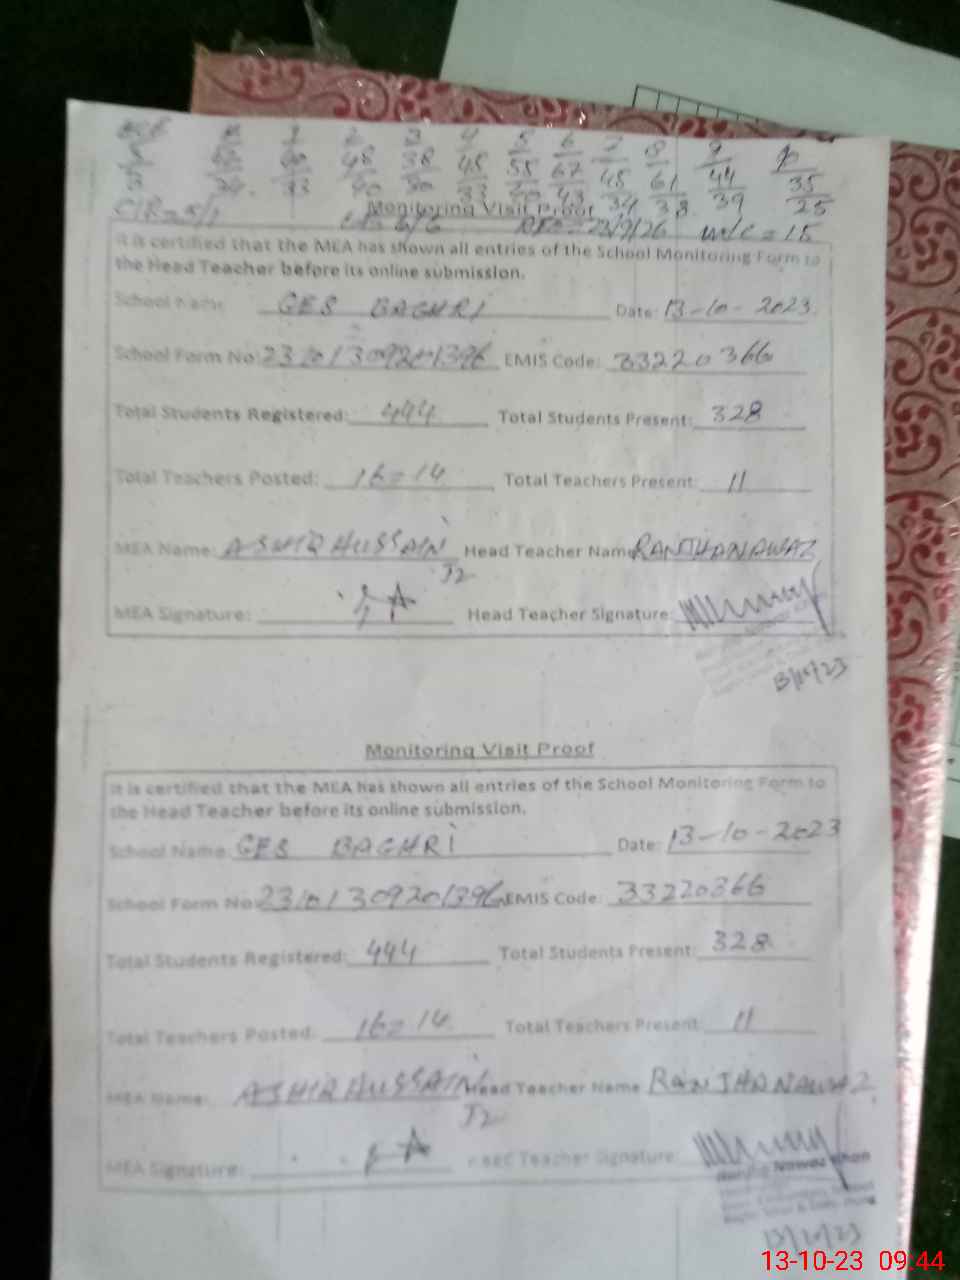 1 2 3 4 5 6 7 8 9 10
48 38 48 55 67 48 61 44 35
40 30 33 40 43 34 38 39 25
Monitoring Visit Proof
m/c = 15
It is certified that the MEA has shown all entries of the School Monitoring Form to
the Head Teacher before its online submission.
School Name GES BAGHRI Date: 13-10-2023
School Form No 23101309201396 EMIS Code: 33220366
Total Students Registered: 444 Total Students Present: 328
Total Teachers Posted: 16=14 Total Teachers Present: 11
MEA Name: ASHIR HUSSAIN Head Teacher Name RANJHANAWAZ
J2
MEA Signature: Head Teacher Signature:
13/10/23
Monitoring Visit Proof
It is certified that the MEA has shown all entries of the School Monitoring Form to
the Head Teacher before its online submission.
School Name GES BAGHRI Date: 13-10-2023
School Form No 23101309201396 EMIS Code: 33220366
Total Students Registered: 444 Total Students Present: 328
Total Teachers Posted: 16=14 Total Teachers Present 11
MEA Name: ASHIR HUSSAIN Head Teacher Name RANJHANAWAZ
J2
MEA Signature: Teacher Signature:
Nawaz Khan
13/10/23
13-10-23 09:44